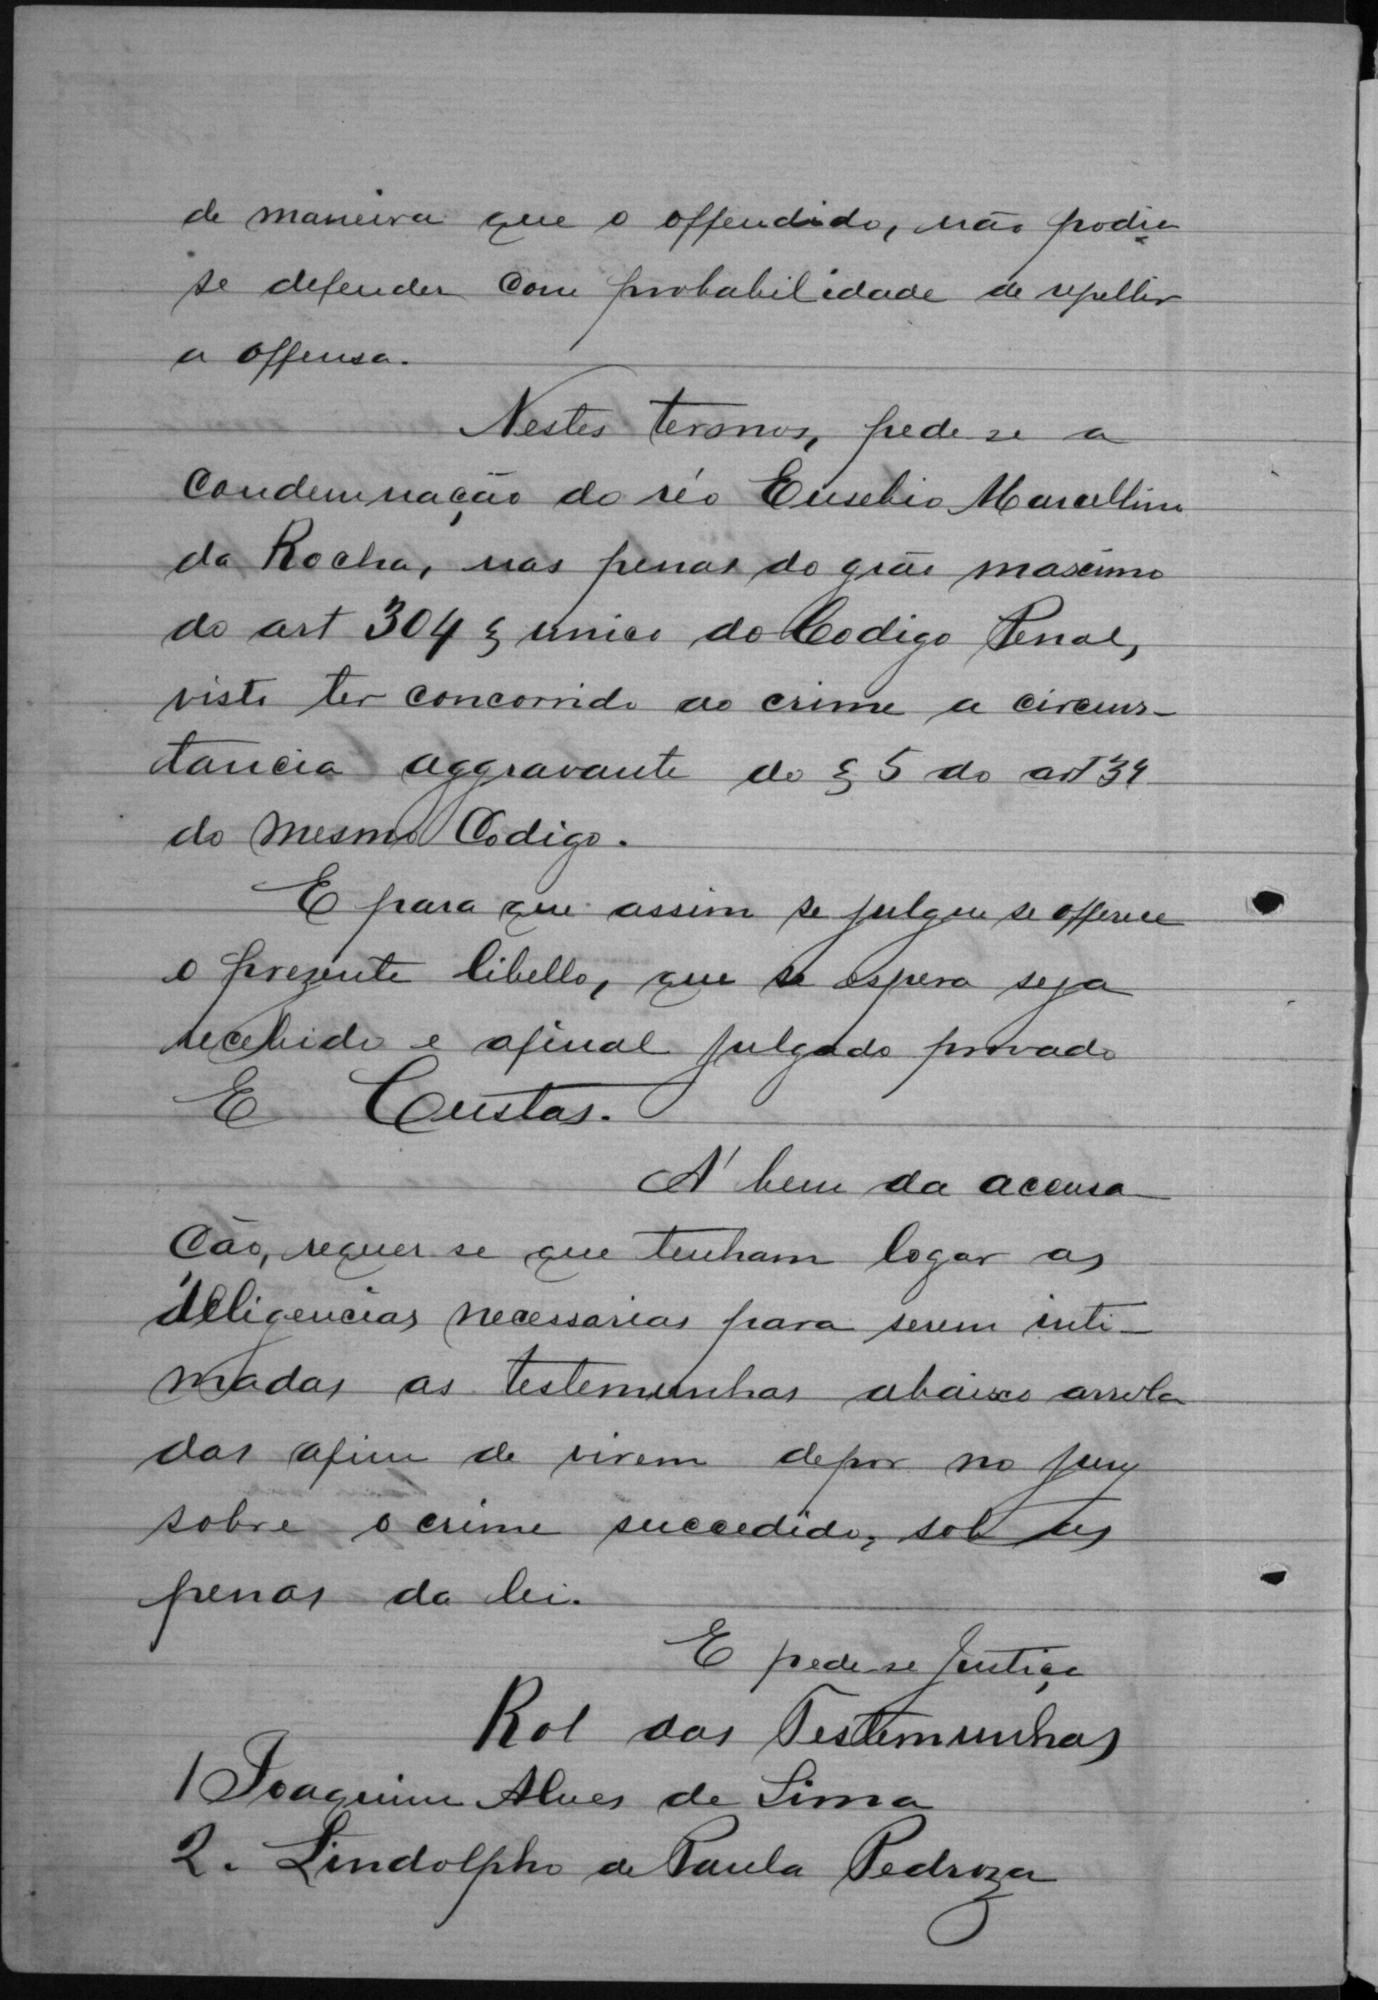 de maneira que o offendido, não podia
se defender com probabilidade de repellir
a offensa.
Nestes termos, pede se a
condemnação do réo Eusebio Marcellino
da Rocha, nas penas do gráo maximo
do art 304 § unico do Codigo Penal,
visto ter concorrido ao crime a circuns-
tancia aggravante do § 5 do art 39
do mesmo Codigo.
E para que assim se julgue se offerece
o prezente libello, que se espera seja
recebido e afinal julgado provado
E Custas.
A' bem da accusa
ção, requer se que tenham logar as
deligencias necessarias para serem inti-
madas as testemunhas abaixo arrola
das afim de virem depor no jury
sobre o crime succedido, sob as
penas da lei.
E pede-se Justiça
Rol das Testemunhas
1 Joaquim Alves de Lima
2. Lindolpho de Paula Pedroza